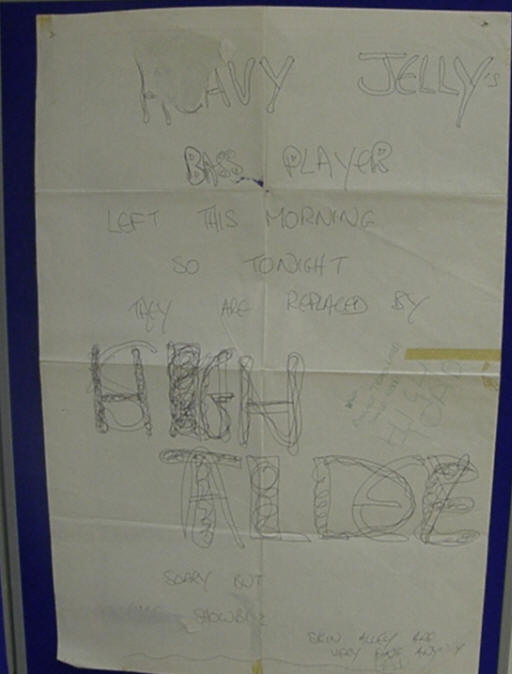 HEAVY JELLY'S
BASS PLAYER
LEFT THIS MORNING
SO TONIGHT
THEY ARE REPLACED BY
HIGH
TALDE
SORRY BUT
SHOWBIZ
SKIN ALLEY ARE
VERY FINE ANYWAY